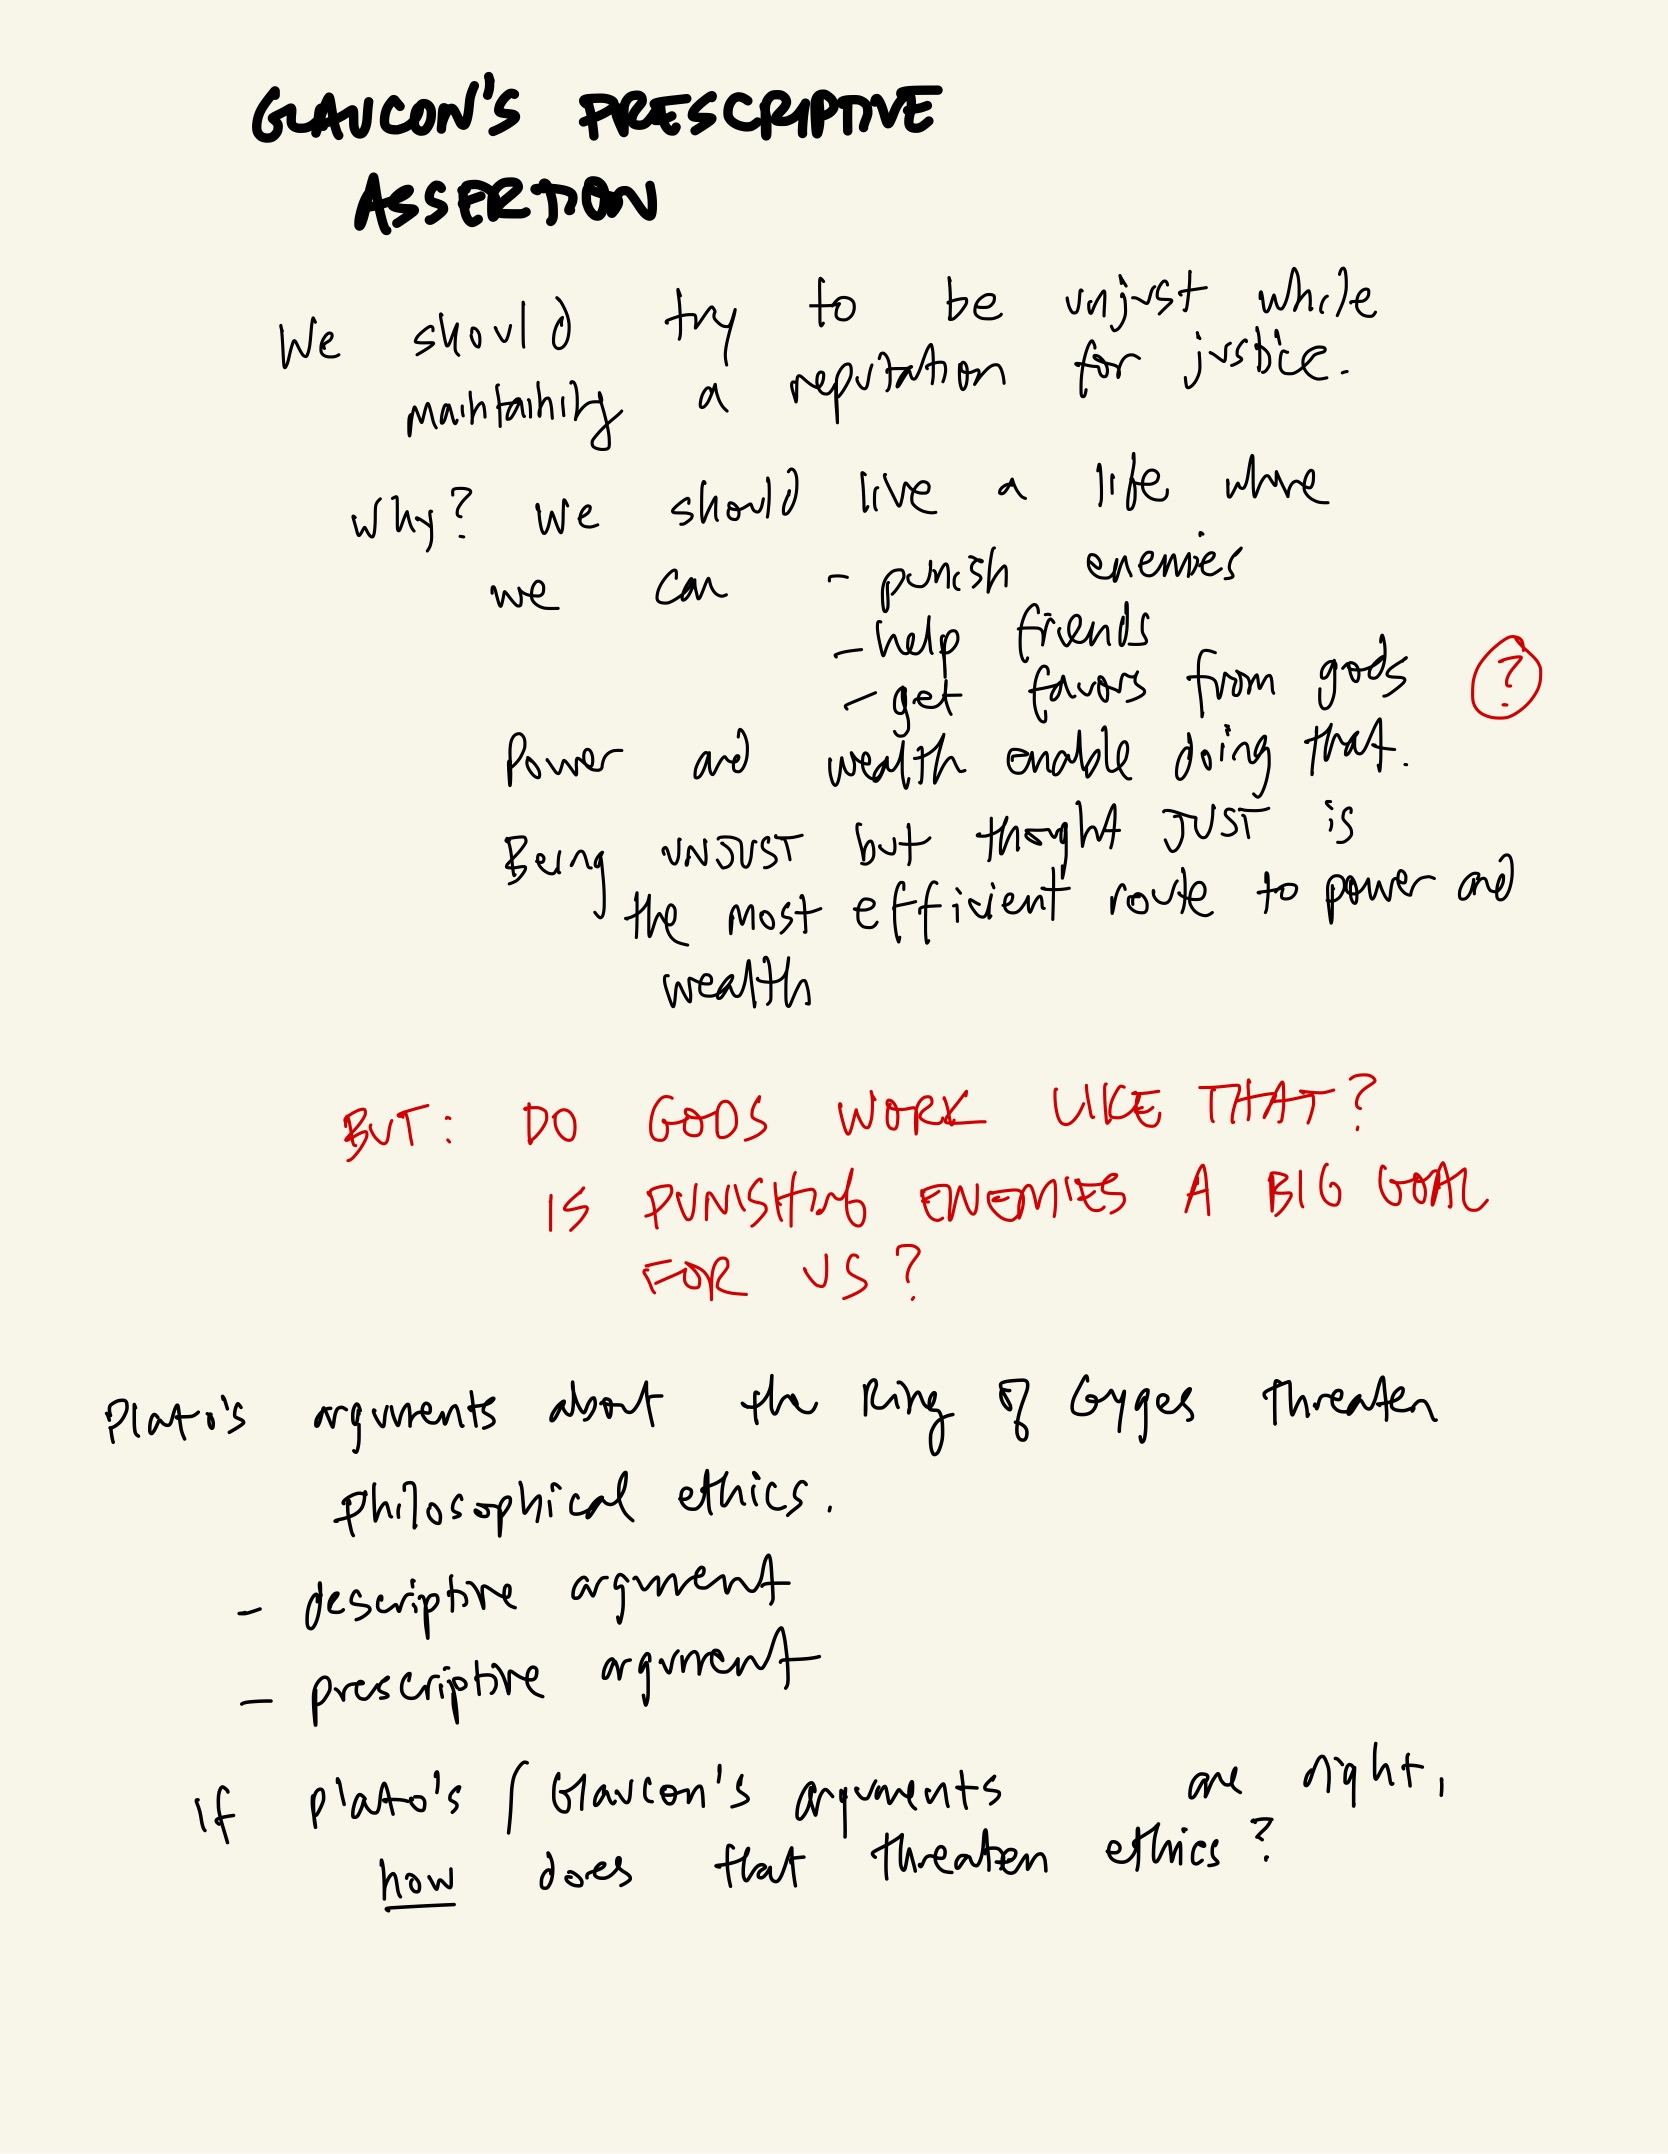 GLAUCON'S PRESCRIPTIVE
ASSERTION
We should try to be unjust while
maintaining a reputation for justice.
Why? We should live a life where
we can - punish enemies
- help friends
- get favors from gods ?
Power and wealth enable doing that.
Being UNJUST but thought JUST is
the most efficient route to power and
wealth
BUT: DO GODS WORK LIKE THAT?
IS PUNISHING ENEMIES A BIG GOAL
FOR US?
Plato's arguments about the Ring of Gyges threaten
philosophical ethics.
- descriptive argument
- prescriptive argument
If Plato's / Glaucon's arguments are right,
how does that threaten ethics?